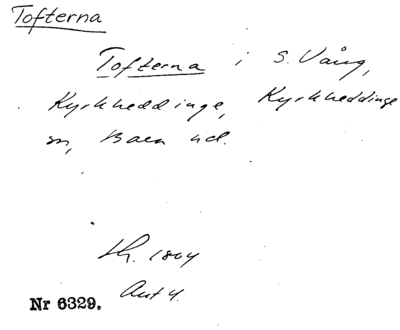 Tofterna
Tofterna i S. Vång,
Kyrkheddinge, Kyrkheddinge
sn, Bara hd.
Lh. 1804
Akt 4.
Nr 6329.